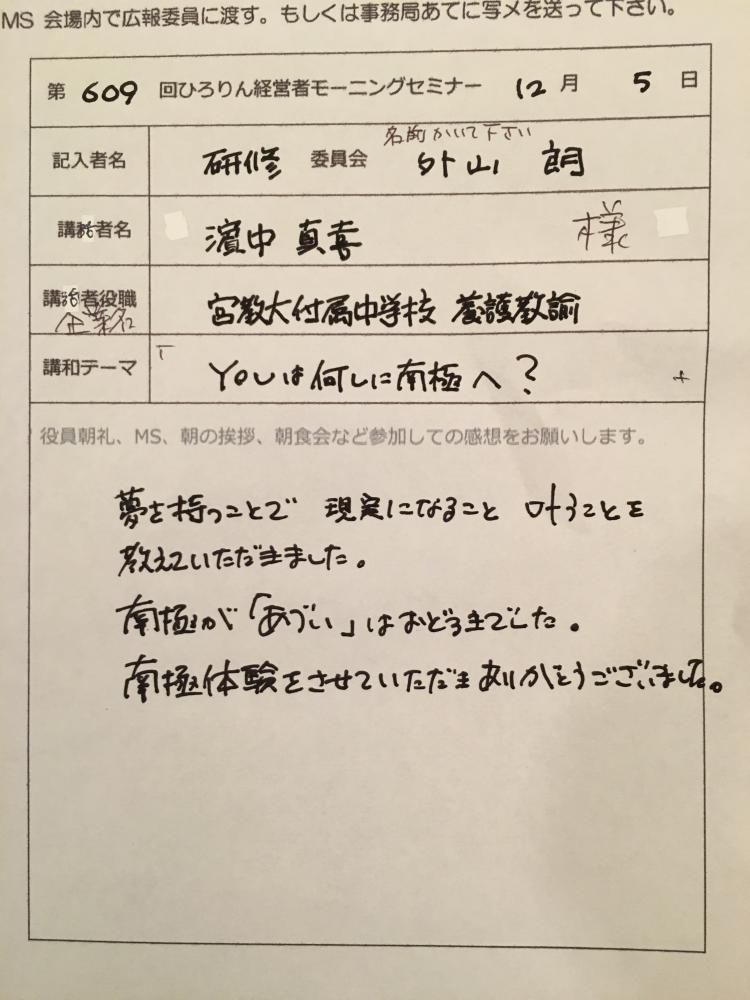 MS 会場内で広報委員に渡す。もしくは事務局あてに写メを送って下さい。
第 609 回ひろりん経営者モーニングセミナー 12 月 5 日
名前かいて下さい
記入者名 研修 委員会 外山 朗
講話者名 濱中 真喜 様
講話者役職 宮教大付属中学校 養護教諭
企業名
講和テーマ 「 YOUは何しに南極へ? 」
役員朝礼、MS、朝の挨拶、朝食会など参加しての感想をお願いします。
夢を持つことで 現実になること 叶うことを
教えていただきました。
南極が「あづい」はおどろきでした。
南極体験をさせていただきありがとうございました。